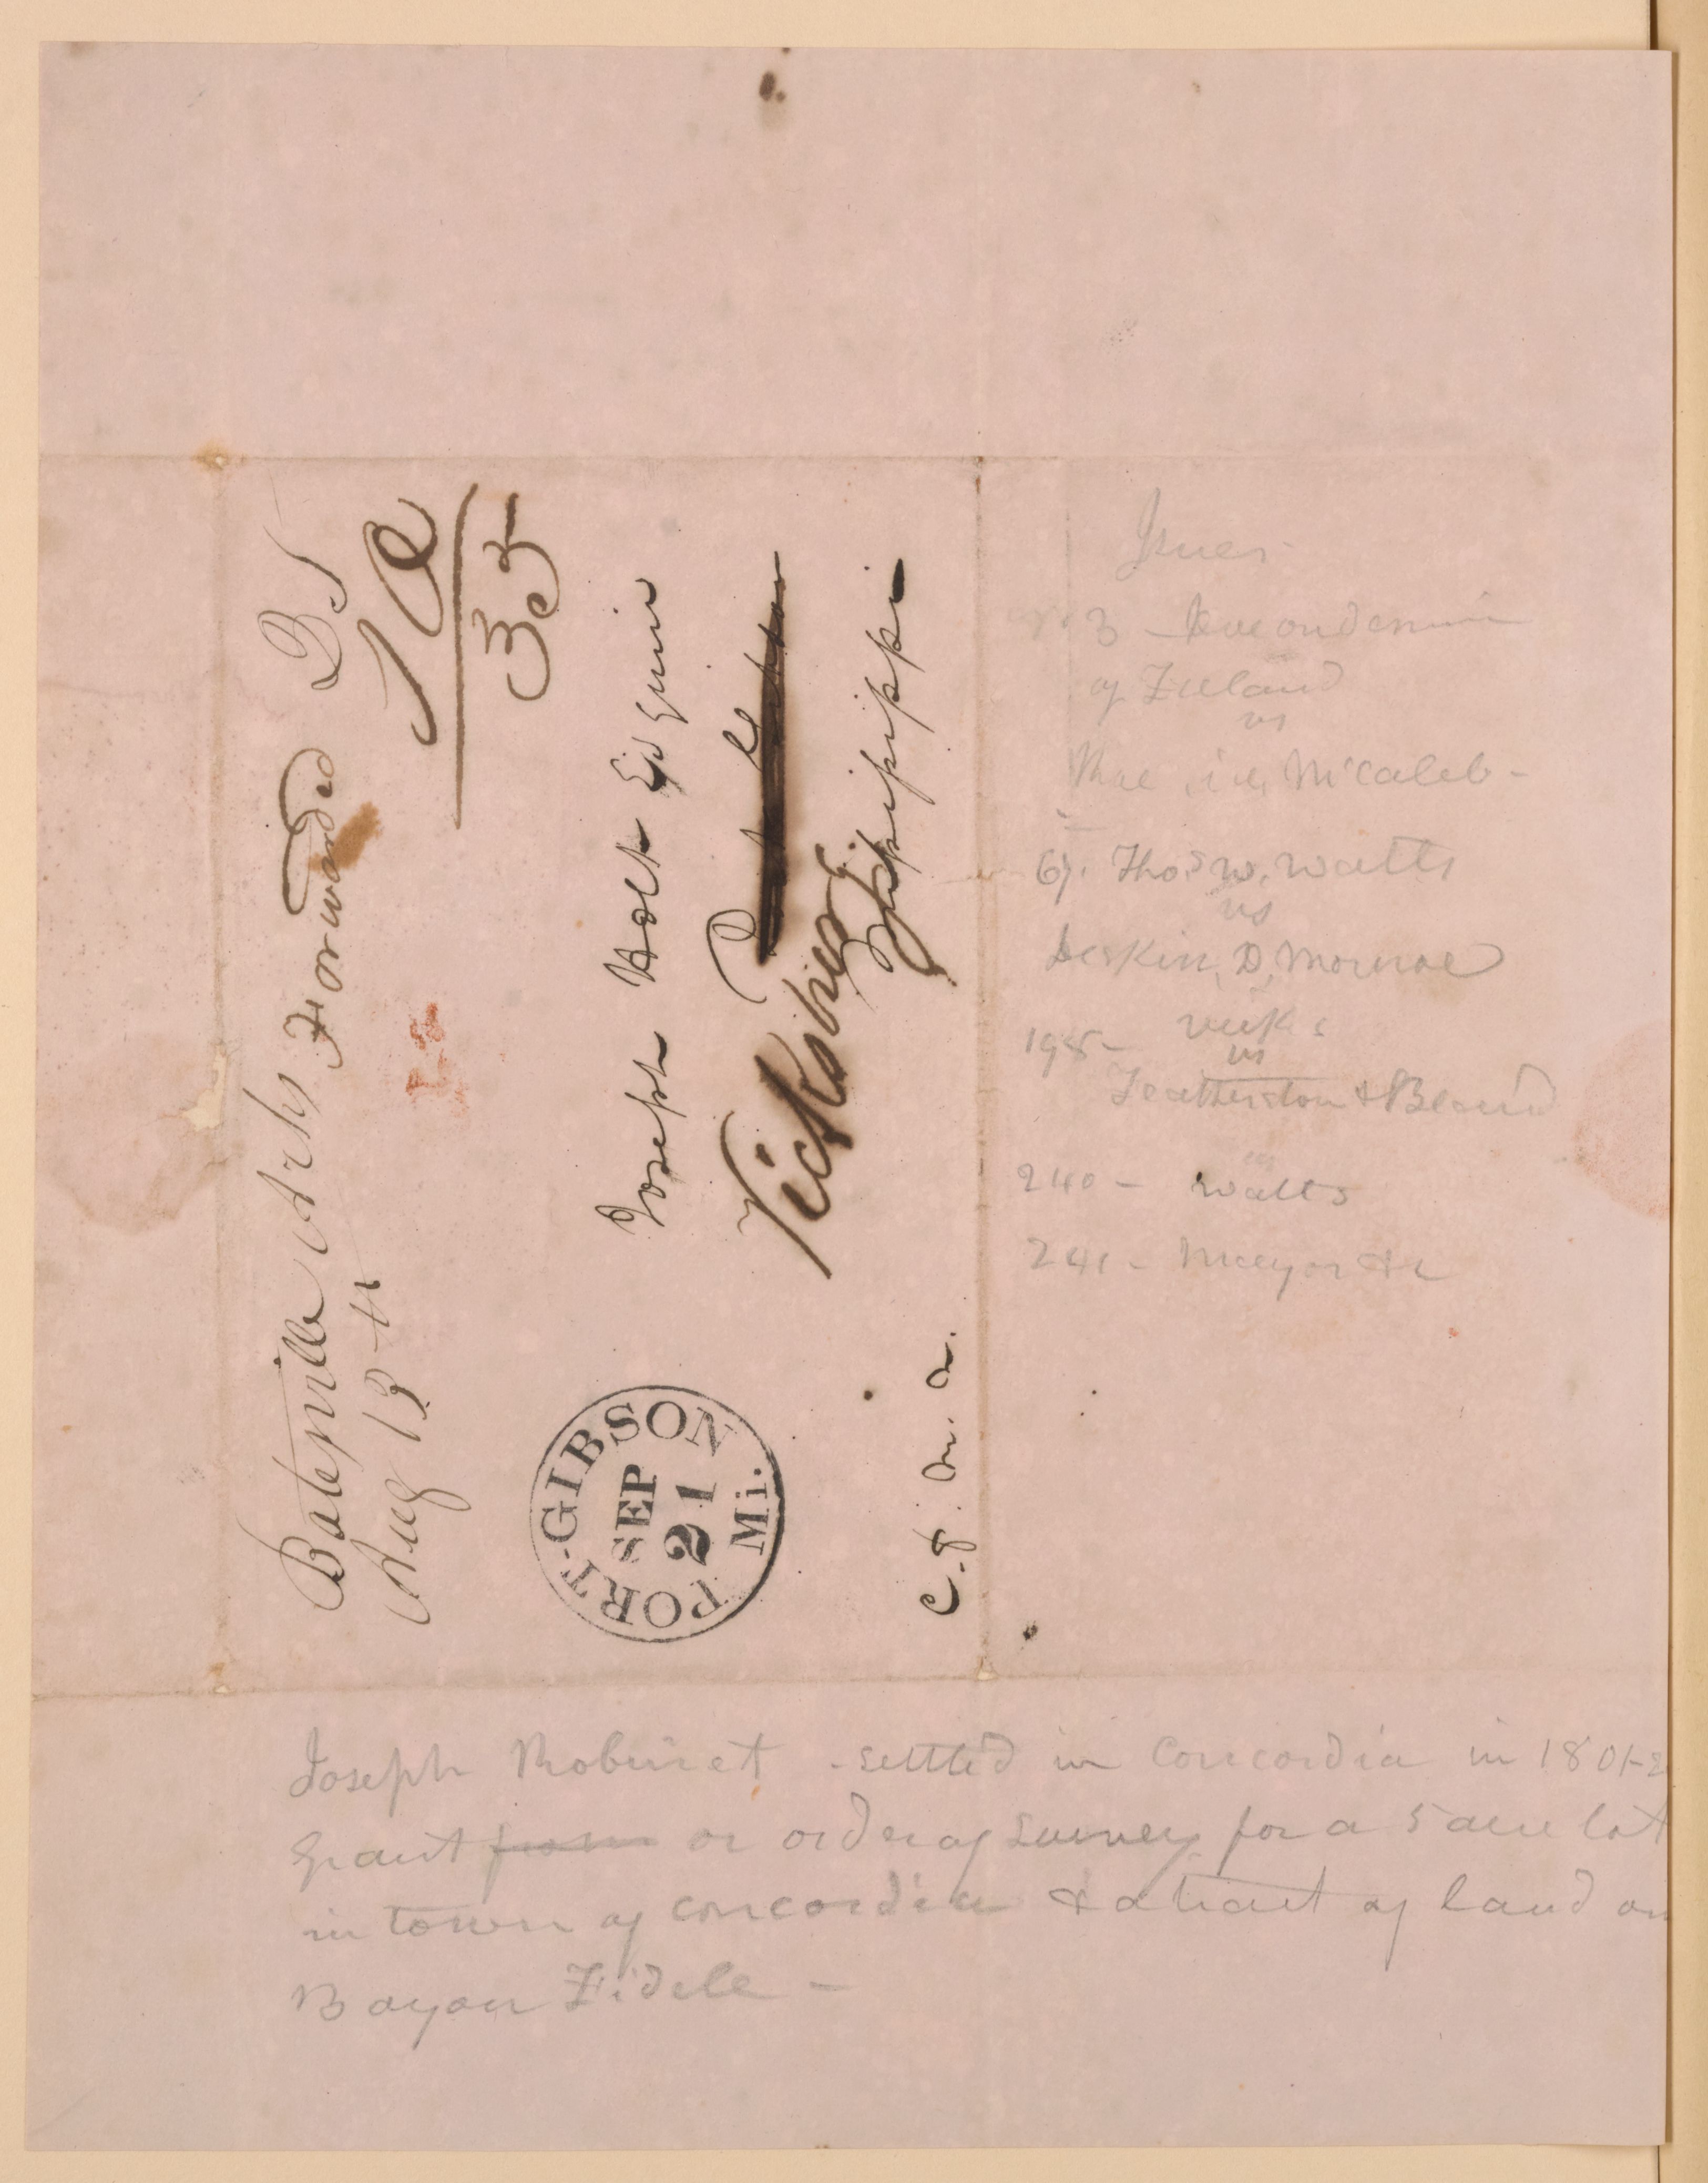 Batesville Arks Forwarded
Aug 13th
10
35
Joseph Holt Esq
Vicksburg
Mississippi
PORT-GIBSON
SEP
21
Mi.
Issues
3
of Ireland
vs
McCaleb -
67. Thos. W. Watts
vs
Deskin D. Monroe
198 - Vick
vs
Featherston & Beard
240 - Watts
241 -
Joseph Robinet - settled in Concordia in 1801-2
Grant from or order of survey for a 5 acre lot
in town of Concordia & a tract of land on
Bayou Fidele -